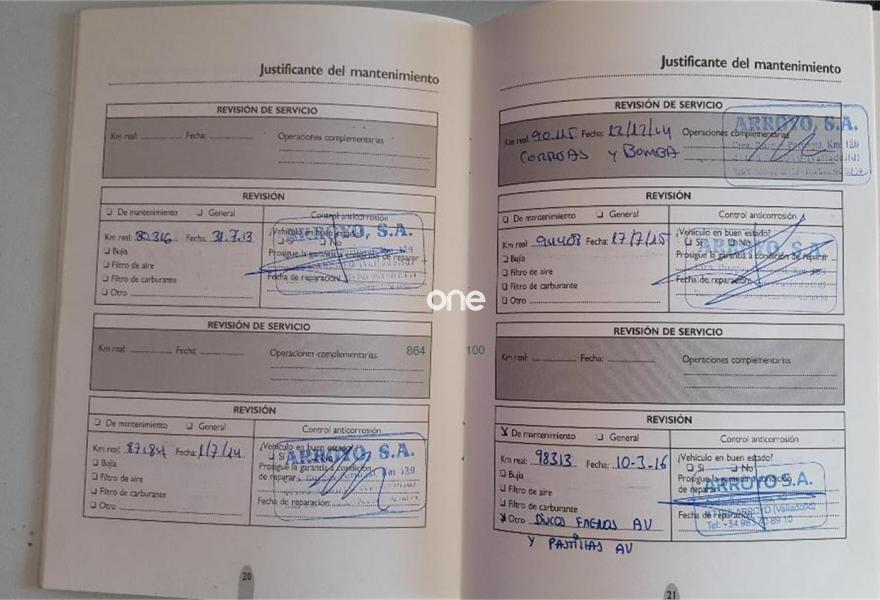 Justificante del mantenimiento
REVISIÓN DE SERVICIO
Km real: Fecha: Operaciones complementarias
REVISIÓN
De mantenimiento General Control anticorrosión
¿Vehículo en buen estado?
Km real: 82316 Fecha: 31.7.13 Sí No
Bujía Prosigue la garantía a condición de reparar
Filtro de aire
Filtro de carburante Fecha de reparación:
Otro
ARROYO, S.A.
REVISIÓN DE SERVICIO
Km real: Fecha: Operaciones complementarias
REVISIÓN
De mantenimiento General Control anticorrosión
¿Vehículo en buen estado?
Km real: Fecha: 1/7/14 Sí No
Bujía Prosigue la garantía a condición
Filtro de aire de reparar
Filtro de carburante
Otro Fecha de reparación:
ARROYO, S.A.
20
Justificante del mantenimiento
REVISIÓN DE SERVICIO
Km real: 90.115 Fecha: 12/12/14 Operaciones complementarias
CORREAS y BOMBA
ARROYO, S.A.
Km 129
(Valladolid)
REVISIÓN
De mantenimiento General Control anticorrosión
¿Vehículo en buen estado?
Km real: 94408 Fecha: 17/7/15 Sí No
Bujía Prosigue la garantía a condición de reparar
Filtro de aire
Filtro de carburante Fecha de reparación:
Otro
ARROYO, S.A.
REVISIÓN DE SERVICIO
Km real: Fecha: Operaciones complementarias
REVISIÓN
De mantenimiento General Control anticorrosión
¿Vehículo en buen estado?
Km real: 98313 Fecha: 10-3-16 Sí No
Bujía Prosigue la garantía a condición
Filtro de aire de reparar
Filtro de carburante
Otro DISCOS FRENOS AV Fecha de reparación:
Y PASTILLAS AV
ARROYO S.A.
ARROYO (Valladolid)
21
one
864 100